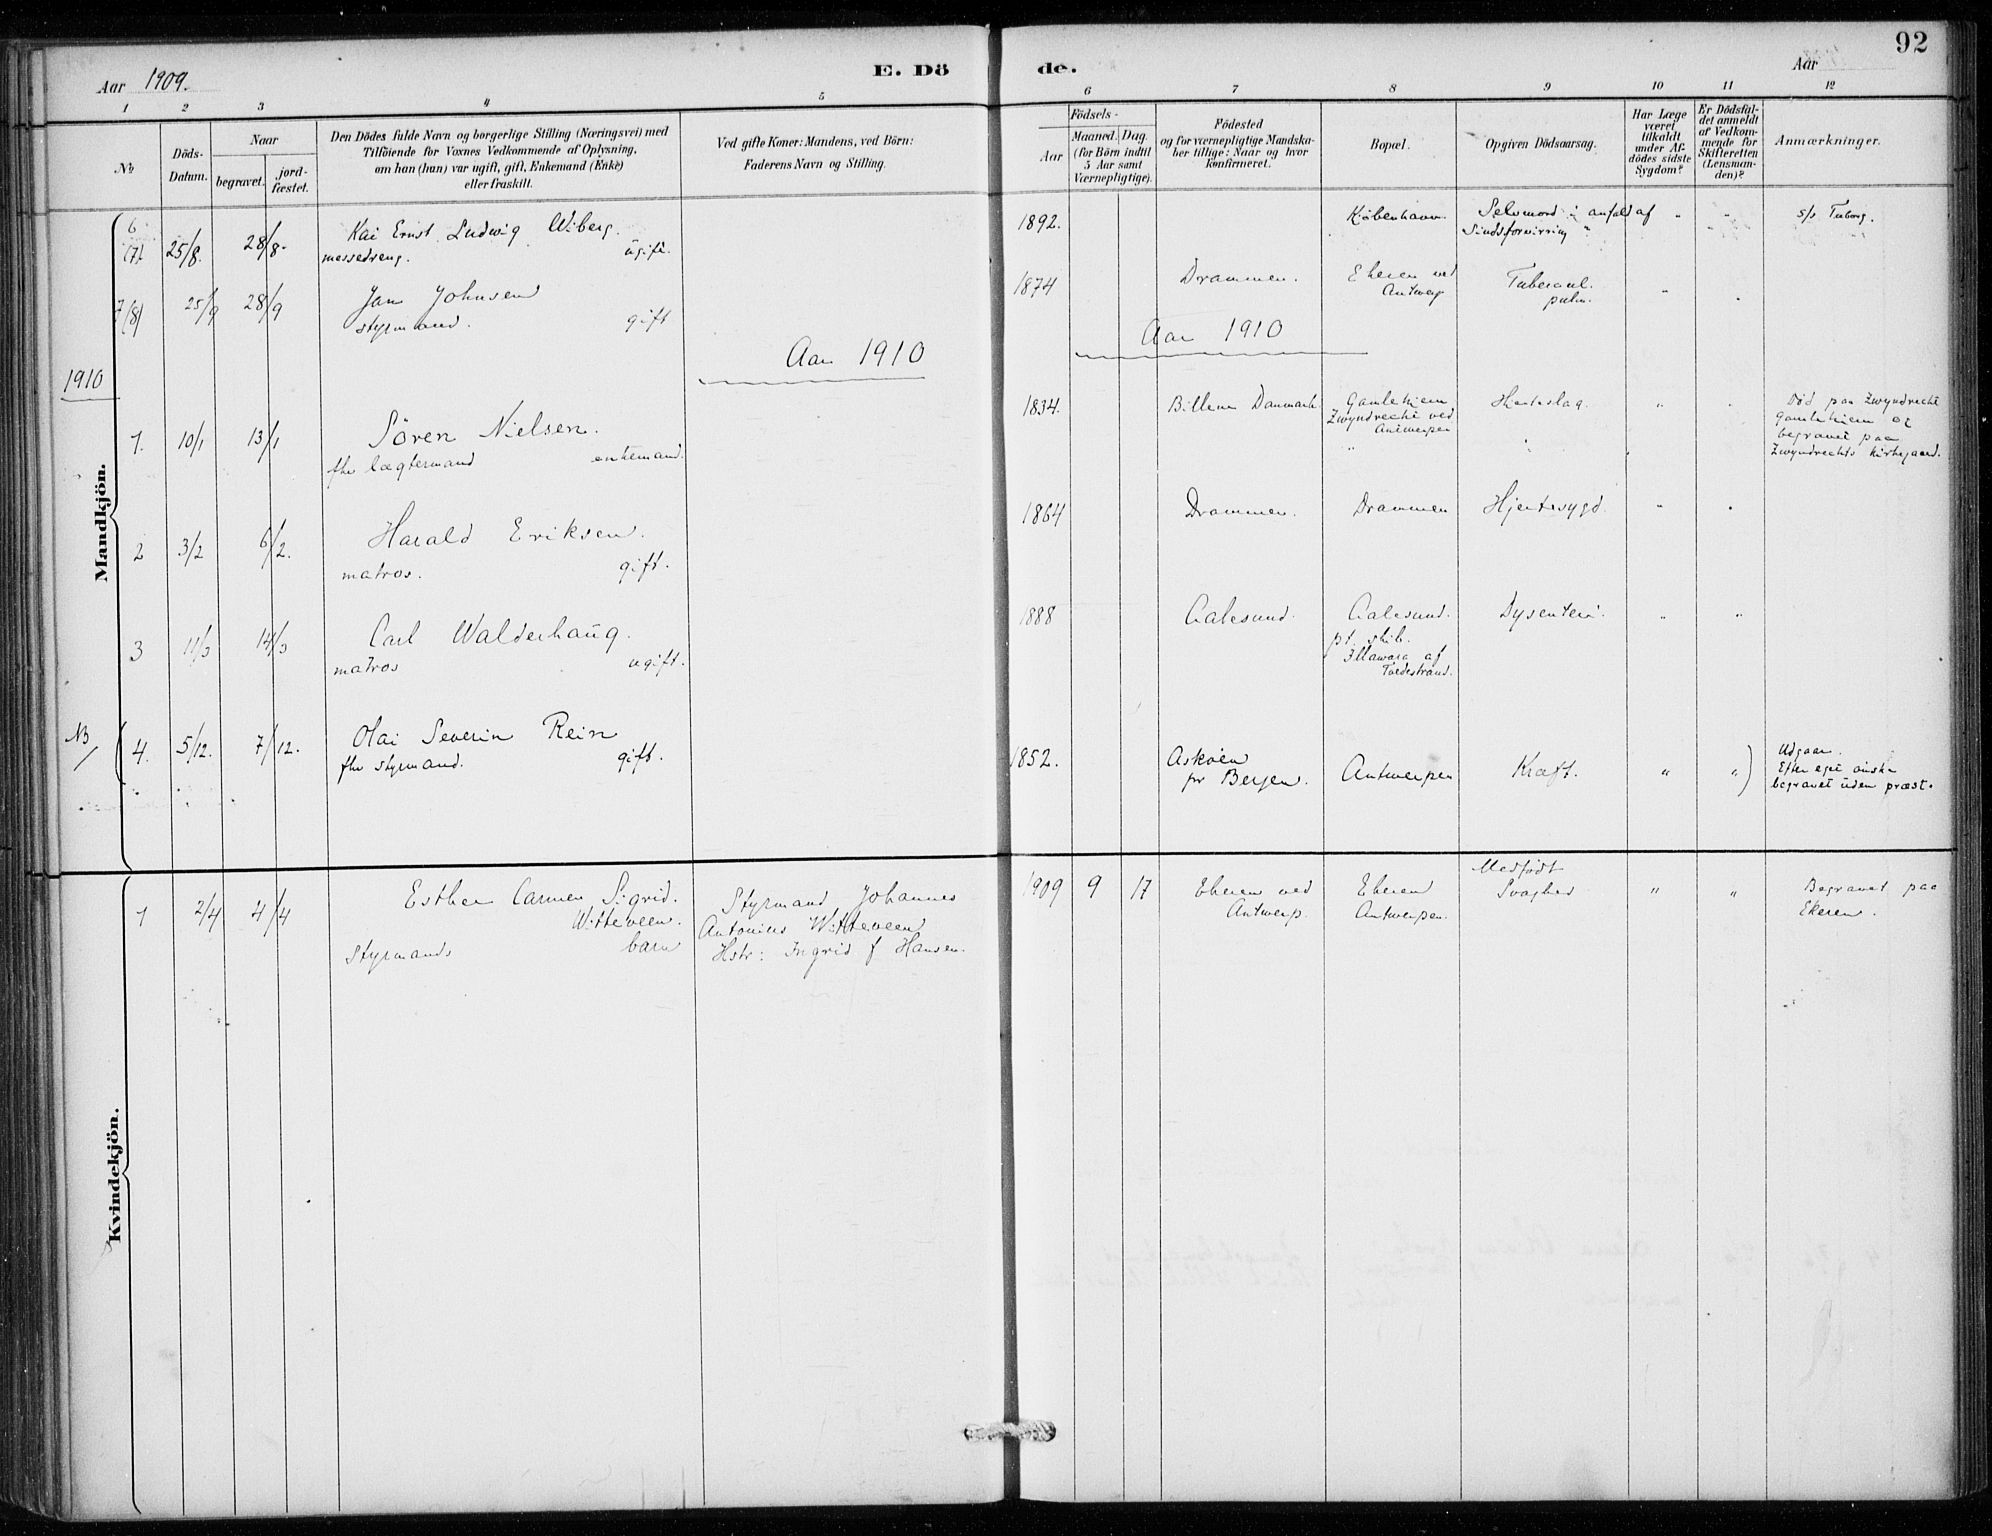 92
Aar 1909.
E. Dö
de.
Aar
1 2 3 4 5
6 7 8 9 10 11 12
No
Döds-
Datum.
Naar
begravet.
jord-
fæstet.
Den Dödes fulde Navn og borgerlige Stilling (Næringsvei) med
Tilföiende for Voxnes Vedkommende af Oplysning,
om han (hun) var ugift, gift, Enkemand (Enke)
eller fraskilt.
Ved gifte Koner: Mandens, ved Börn:
Faderens Navn og Stilling.
Födsels-
Aar
Maaned. Dag.
(for Börn indtil
5 Aar samt
Værnepligtige).
Födested
og for værnepligtige Mandska-
ber tillige: Naar og hvor
konfirmeret.
Bopæl.
Opgiven Dödsaarsag.
Har Læge
været
tilkaldt
under Af-
dödes sidste
Sygdom?
Er Dödsfal-
det anmeldt
af Vedkom-
mende for
Skifteretten
(Lensman-
den)?
Anmærkninger.
Mandkjön.
6
(7) 25/8. 28/8. Kai Ernst Ludwig Wiberg.
messedreng. ugift.
1892. Kjöbenhavn. Selvmord i anfald af " " s/s Tuborg.
Sindsforvirring "
7(8) 25/9 28/9 Jan Johnsen
styrmand. gift
1874 Drammen. Ekeren ved
Antwerp Tubercul.
pulm. " "
Aar 1910
Aar 1910
1910
1. 10/1 13/1 Sören Nielsen.
fhv lægtermand enkemand.
1834. Billum Danmark. Gamlehjem
Zwyndrecht ved
Antwerpen Hjerteslag. " " Död paa Zwyndrecht
gamlehjem og
begravet paa
Zwyndrechts kirkegaard.
2 3/2 6/2. Harald Eriksen.
matros. gift.
1864 Drammen. Drammen Hjertesygd. " "
3 11/3 14/3 Carl Walderhaug.
matros ugift.
1888 Aalesund. Aalesund.
pt. skib.
Illawara af
Tvedestrand. Dysenteri " "
NB
4. 5/12. 7/12. Olai Severin Rein
fhv styrmand. gift.
1852. Askøen
pr Bergen. Antwerpen Kræft. " " Udgaar.
Efter eget önske
begravet uden præst.
Kvindekjön.
1 2/4 4/4 Esther Carmen Sigrid.
Witteveen.
styrmands barn
Styrmand Johannes
Antonius Witteveen
Hstr: Ingrid f Hansen.
1909 9 17 Ekeren ved
Antwerp. Ekeren
Antwerpen. Medfödt
Svaghed " " Begravet paa
Ekeren.